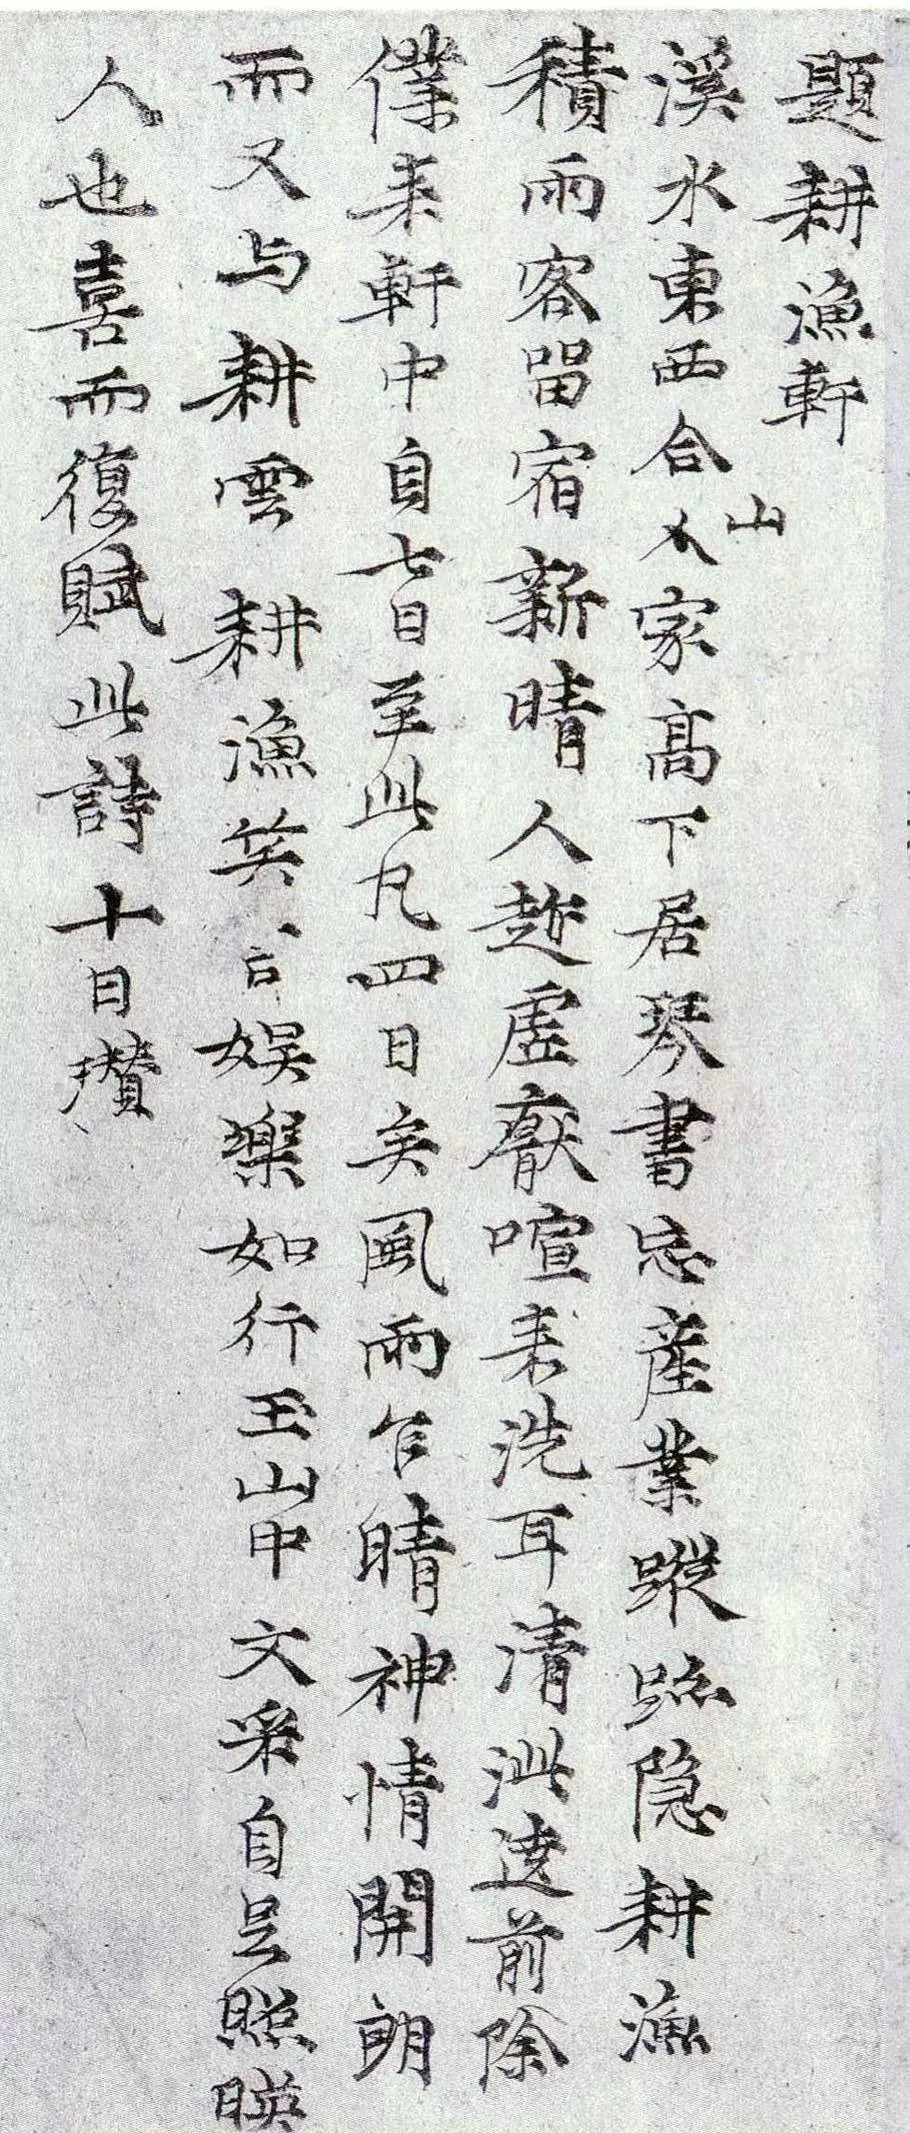 題耕漁軒
山
溪水東西合人家高下居琴書忘產業蹤跡隱耕漁
積雨客留宿新晴人趁虛厭喧来洗耳清泚遶前除
僕来軒中自七日至此凡四日矣風雨乍晴神情開朗
而又与耕雲耕漁笑言娛樂如行玉山中文采自足照映
人也喜而復賦此詩十日瓚